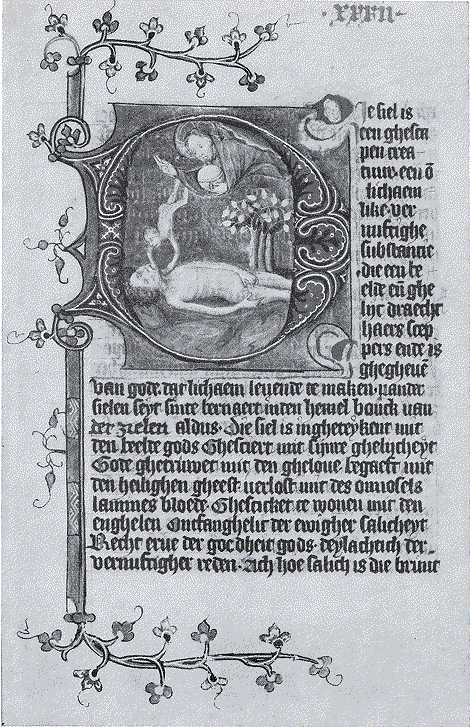 ·XXXII·
Je siel is
een ghesca
pen crea
tuure een ō
lichaem
like ver
nuftighe
substancie
die een be
elde eñ ghe
lijc draecht
haers scep
pers ende is
ghegheuē
van gode dat lichaem leuende te maken· vander
sielen seyt sinte bernaert inden hemel bouck van
der zielen aldus· Die siel is ingheteykent mit
den beelde gods Ghesciert mit sijnre ghelijcheyt
Gode ghetruwet mit den gheloue begaeft mit
den heilighen gheest verlost mit des onnosels
lammes bloede Ghescicket te wonen mit den
enghelen Ontfanghelic der ewigher salicheyt
Recht erue der godheit gods· deylachtich der
vernuftigher reden· Ach hoe salich is die bruut